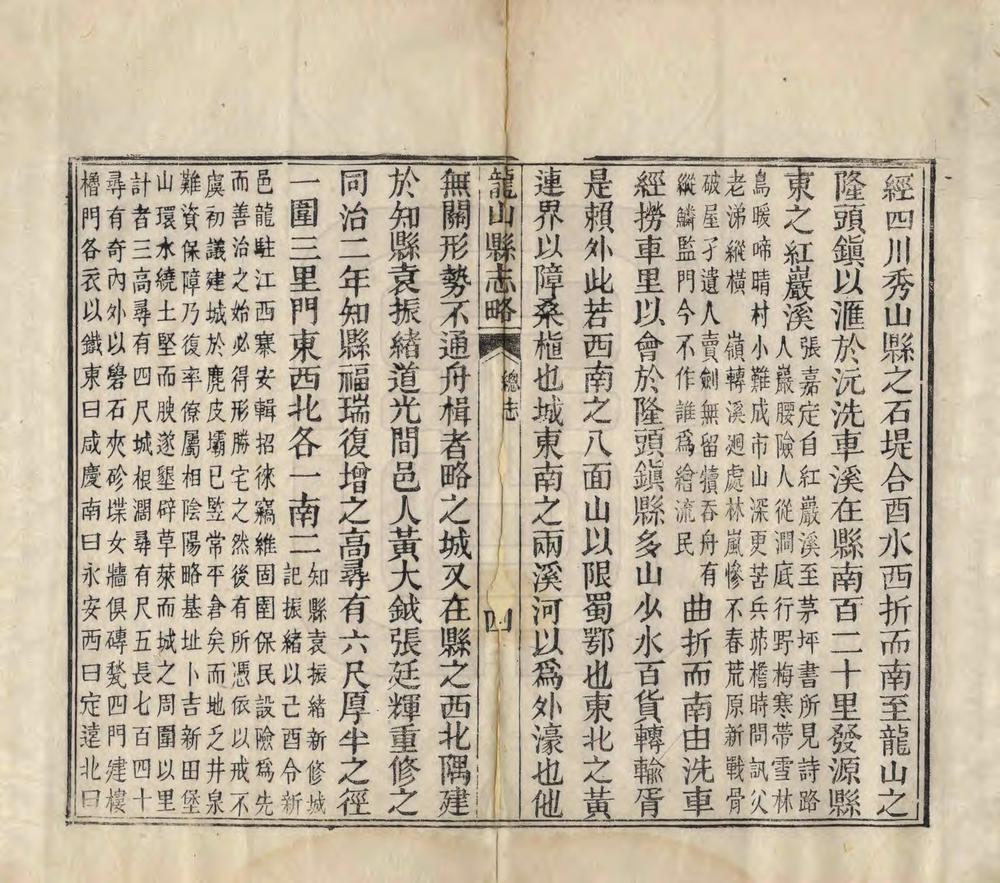 經四川秀山縣之石堤合酉水西折而南至龍山之
隆頭鎮以滙於沅洗車溪在縣南百二十里發源縣
東之紅巖溪
張嘉定自紅巖溪至茅坪書所見詩路
人巖腰險人從澗底行野梅寒帶雪林
鳥暖啼晴村小難成市山深更苦兵茆檐時問訊父
老涕縱橫 嶺轉溪迴處林嵐慘不春荒原新戰骨
破屋孑遺人賣劍無留犢吞舟有
縱鱗監門今不作誰爲繪流民
曲折而南由洗車
經撈車里以會於隆頭鎮縣多山少水百貨轉輸胥
是賴外此若西南之八面山以限蜀鄂也東北之黃
連界以障桑植也城東南之兩溪河以爲外濠也他
龍山縣志略 總志 四
無關形勢不通舟楫者略之城又在縣之西北隅建
於知縣袁振緒道光間邑人黃大鉞張廷輝重修之
同治二年知縣福瑞復增之高尋有六尺厚半之徑
一圍三里門東西北各一南二
知縣袁振緒新修城
記振緒以己酉令新
邑龍駐江西寨安輯招徠竊維固圉保民設險爲先
而善治之始必得形勝宅之然後有所憑依以戒不
虞初議建城於鹿皮壩已豎常平倉矣而地乏井泉
難資保障乃復率僚屬相陰陽略基址卜吉新田堡
山環水繞土堅而腴遂墾辟草萊而城之周圍以里
計者三高尋有四尺城根濶尋有尺五長七百四十
尋有奇內外以礐石夾砂堞女牆俱磚甃四門建樓
櫓門各衣以鐵東曰咸慶南曰永安西曰定遠北曰